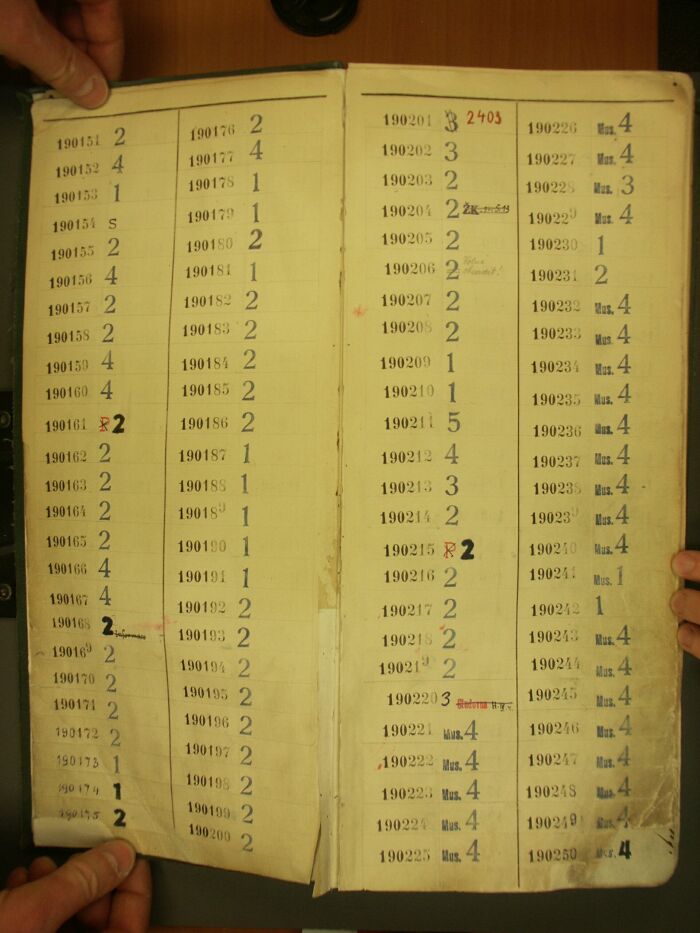 190151 2
190152 4
190153 1
190154 s
190155 2
190156 4
190157 2
190158 2
190159 4
190160 4
190161 R 2
190162 2
190163 2
190164 2
190165 2
190166 4
190167 4
190168 2
190169 2
190170 2
190171 2
190172 2
190173 1
190174 1
190175 2
190176 2
190177 4
190178 1
190179 1
190180 2
190181 1
190182 2
190183 2
190184 2
190185 2
190186 2
190187 1
190188 1
190189 1
190190 1
190191 1
190192 2
190193 2
190194 2
190195 2
190196 2
190197 2
190198 2
190199 2
190200 2
190201 3 2403
190202 3
190203 2
190204 2 ŽK
190205 2
190206 2
190207 2
190208 2
190209 1
190210 1
190211 5
190212 4
190213 3
190214 2
190215 R 2
190216 2
190217 2
190218 2
190219 2
190220 3
190221 Mus. 4
190222 Mus. 4
190223 Mus. 4
190224 Mus. 4
190225 Mus. 4
190226 Mus. 4
190227 Mus. 4
190228 Mus. 3
190229 Mus. 4
190230 1
190231 2
190232 Mus. 4
190233 Mus. 4
190234 Mus. 4
190235 Mus. 4
190236 Mus. 4
190237 Mus. 4
190238 Mus. 4
190239 Mus. 4
190240 Mus. 4
190241 Mus. 1
190242 1
190243 Mus. 4
190244 Mus. 4
190245 Mus. 4
190246 Mus. 4
190247 Mus. 4
190248 Mus. 4
190249 Mus. 4
190250 Mus. 4